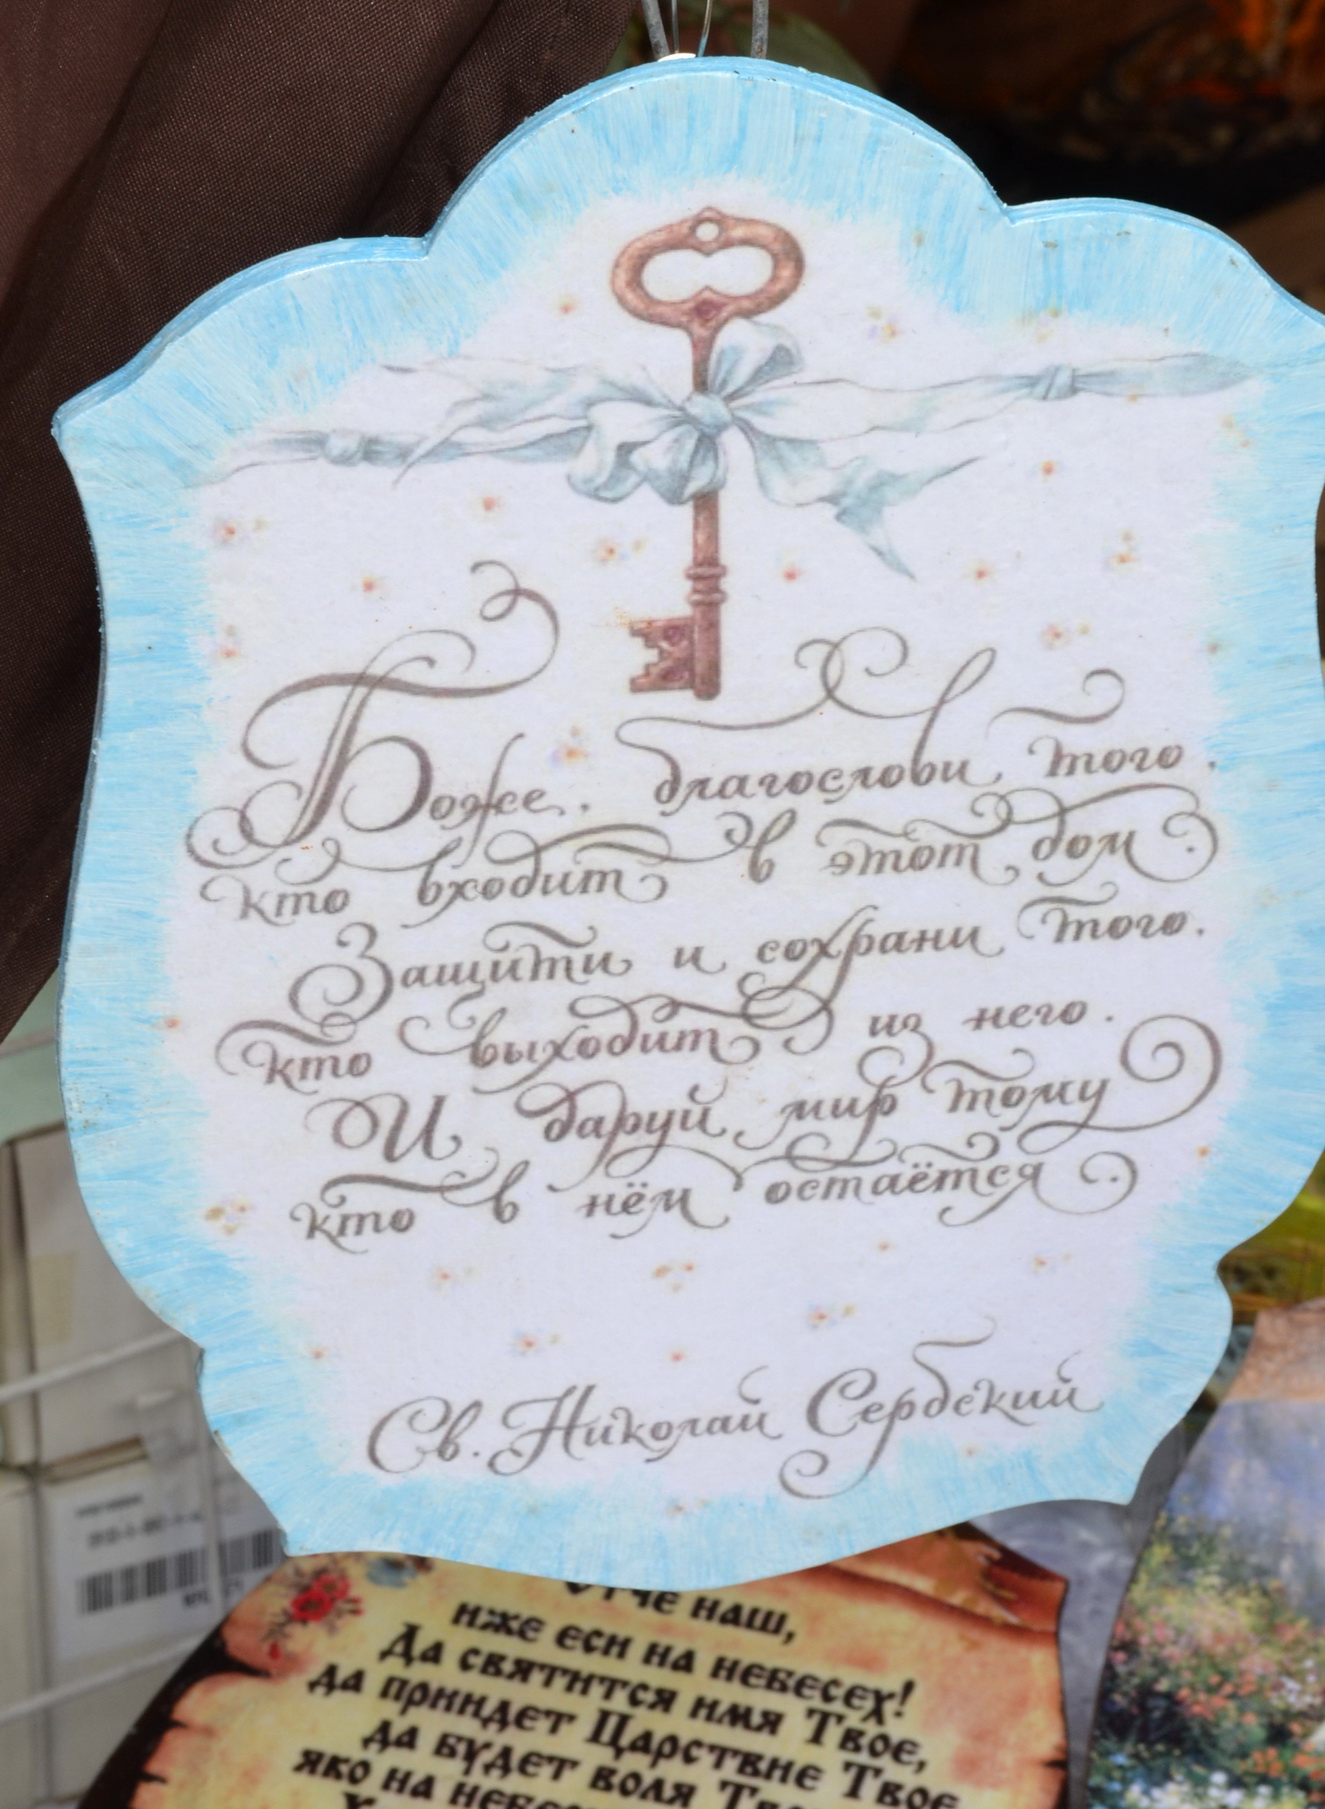 Боже, благослови того,
кто входит в этот дом.
Защити и сохрани того,
кто выходит из него.
И даруй мир тому
кто в нём остаётся.
Св. Николай Сербский
Отче наш,
иже еси на небесех!
Да святится имя Твое,
да приидет Царствие Твое
да будет воля
яко на